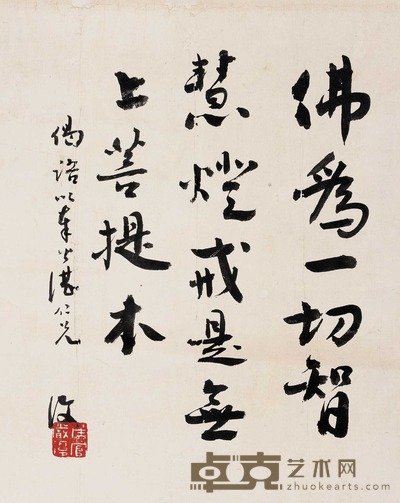 佛為一切智
慧燈戒是無
上菩提本
偈語以奉少湛仁兄
卓克艺术网
zhuokearts.com